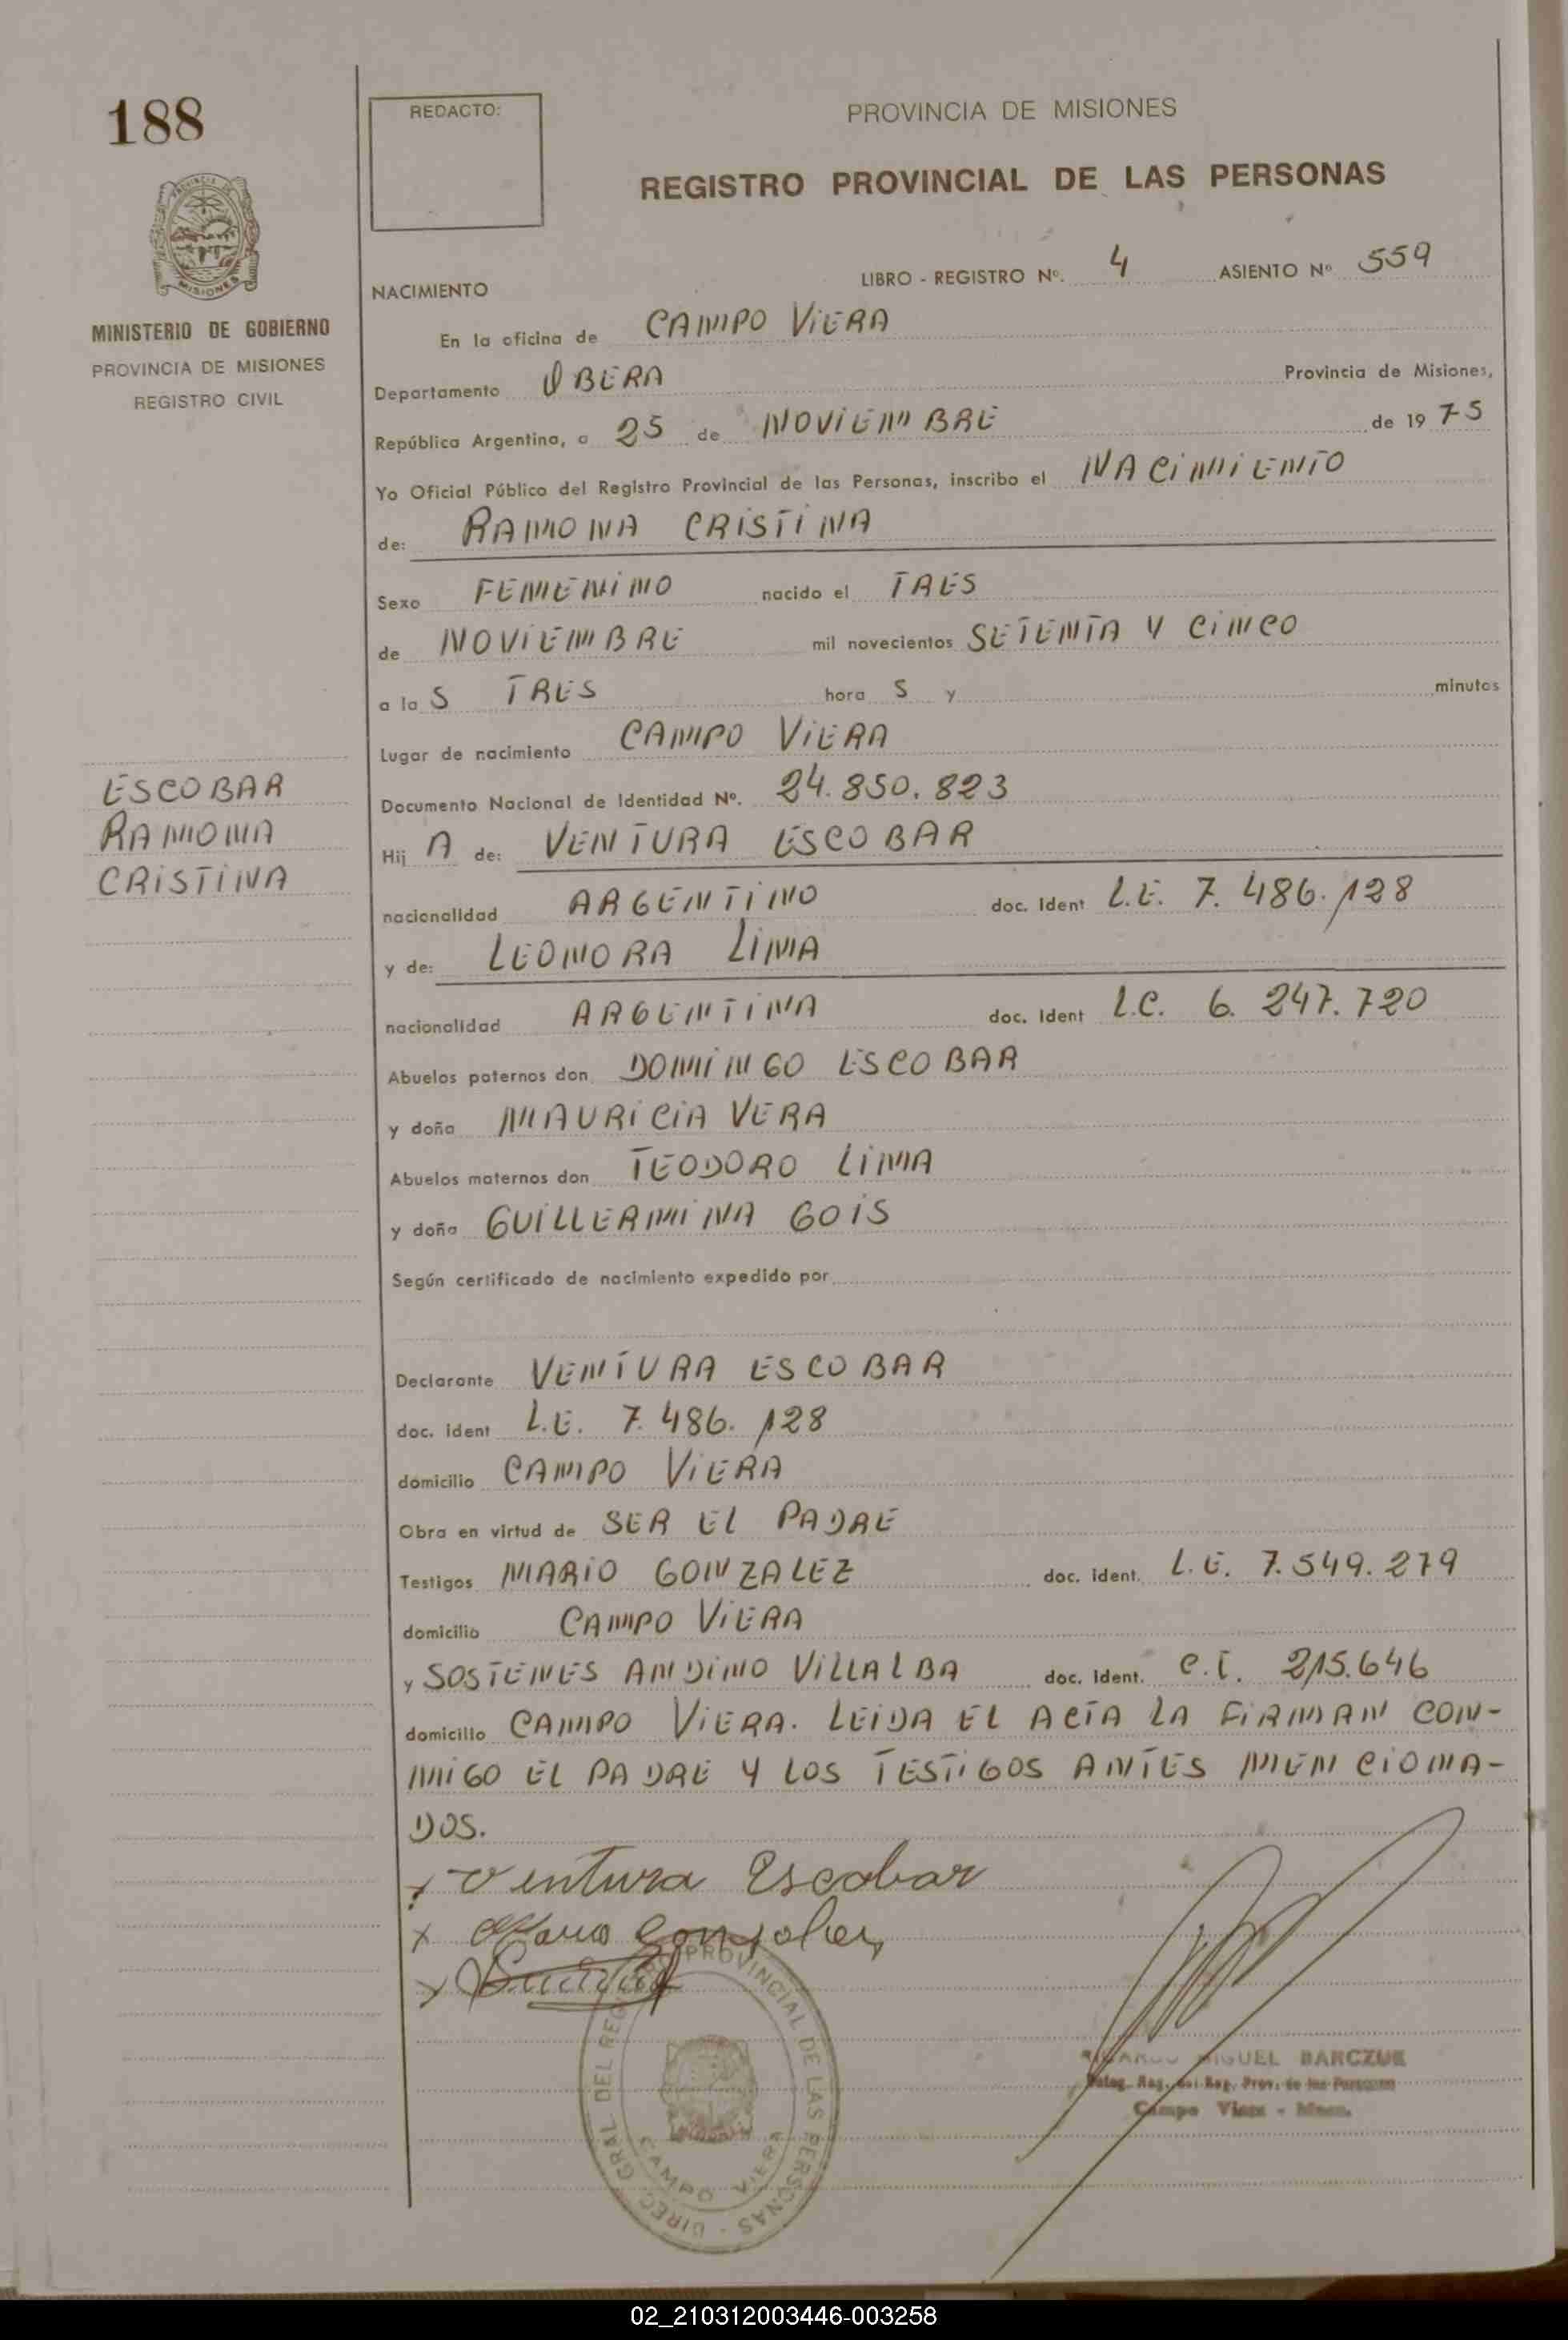 188
REDACTO:
PROVINCIA DE MISIONES
REGISTRO PROVINCIAL DE LAS PERSONAS
MISIONES
MINISTERIO DE GOBIERNO
PROVINCIA DE MISIONES
REGISTRO CIVIL
LIBRO - REGISTRO Nº. 4 ASIENTO Nº 559
NACIMIENTO
En la oficina de CAMPO VIERA
Departamento OBERA Provincia de Misiones,
República Argentina, a 25 de NOVIEMBRE de 19 75
Yo Oficial Público del Registro Provincial de las Personas, inscribo el NACIMIENTO
de: RAMONA CRISTINA
Sexo FEMENINO nacido el TRES
de NOVIEMBRE mil novecientos SETENTA Y CINCO
a la S TRES hora S y minutos
Lugar de nacimiento CAMPO VIERA
ESCOBAR
RAMONA
CRISTINA
Documento Nacional de Identidad Nº. 24.850.823
Hij A de: VENTURA ESCOBAR
nacionalidad ARGENTINO doc. Ident L.E. 7.486.128
y de: LEONORA LIMA
nacionalidad ARGENTINA doc. Ident L.C. 6.247.720
Abuelos paternos don DOMINGO ESCOBAR
y doña MAURICIA VERA
Abuelos maternos don TEODORO LIMA
y doña GUILLERMINA GOIS
Según certificado de nacimiento expedido por
Declarante VENTURA ESCOBAR
doc. ident L.E. 7.486.128
domicilio CAMPO VIERA
Obra en virtud de SER EL PADRE
Testigos MARIO GONZALEZ doc. ident. L.E. 7.549.279
domicilio CAMPO VIERA
y SOSTENES ANDINO VILLALBA doc. Ident. C.I. 215.646
domicilio CAMPO VIERA. LEIDA EL ACTA LA FIRMAN CON-
MIGO EL PADRE Y LOS TESTIGOS ANTES MENCIONA-
DOS.
x Ventura Escobar
x Mario Gonzalez
x
DIREC. GRAL. DEL REG. PROVINCIAL DE LAS PERSONAS
CAMPO VIERA
RICARDO MIGUEL BARCZUK
Deleg. Reg. del Reg. Prov. de las Personas
Campo Viera - Mnes.
02_210312003446-003258